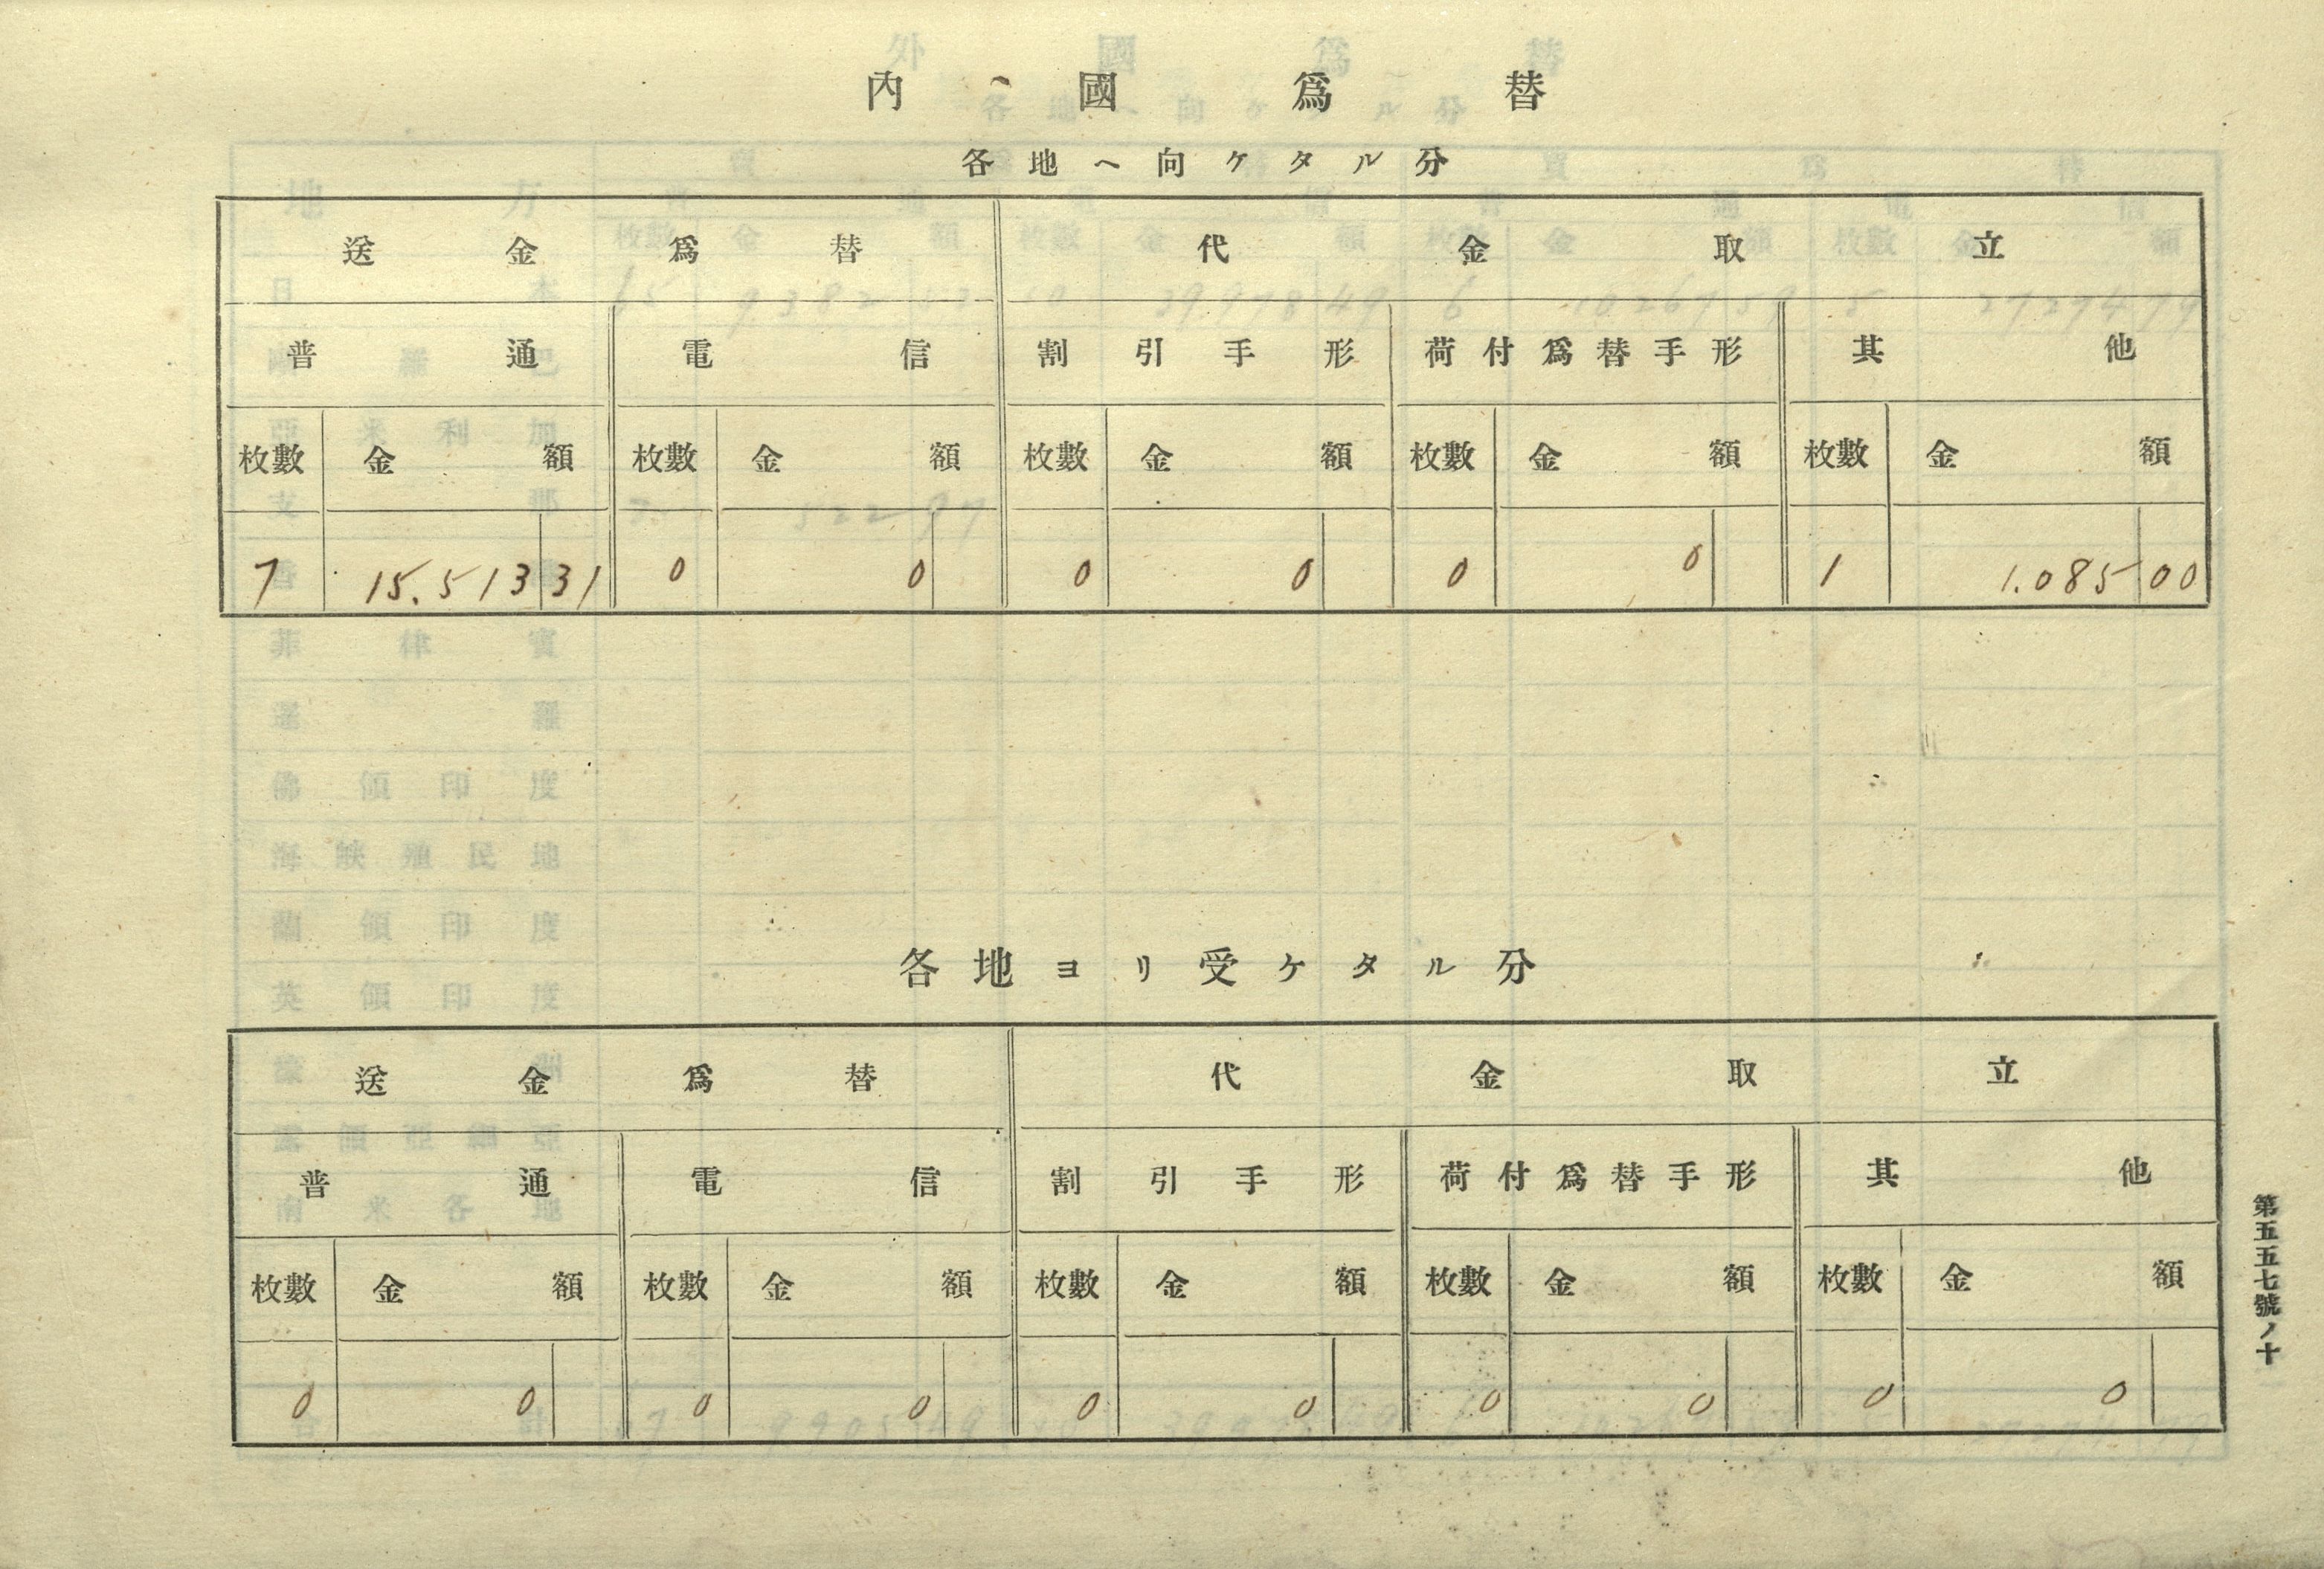 內國爲替
各地ヘ向ケタル分
送金爲替 代金取立
普通 電信 割引手形 荷付爲替手形 其他
枚數 金額 枚數 金額 枚數 金額 枚數 金額 枚數 金額
7 15.513 31 0 0 0 0 0 0 1 1.085 00
各地ヨリ受ケタル分
送金爲替 代金取立
普通 電信 割引手形 荷付爲替手形 其他
枚數 金額 枚數 金額 枚數 金額 枚數 金額 枚數 金額
0 0 0 0 0 0 0 0 0 0
第五五七號ノ十